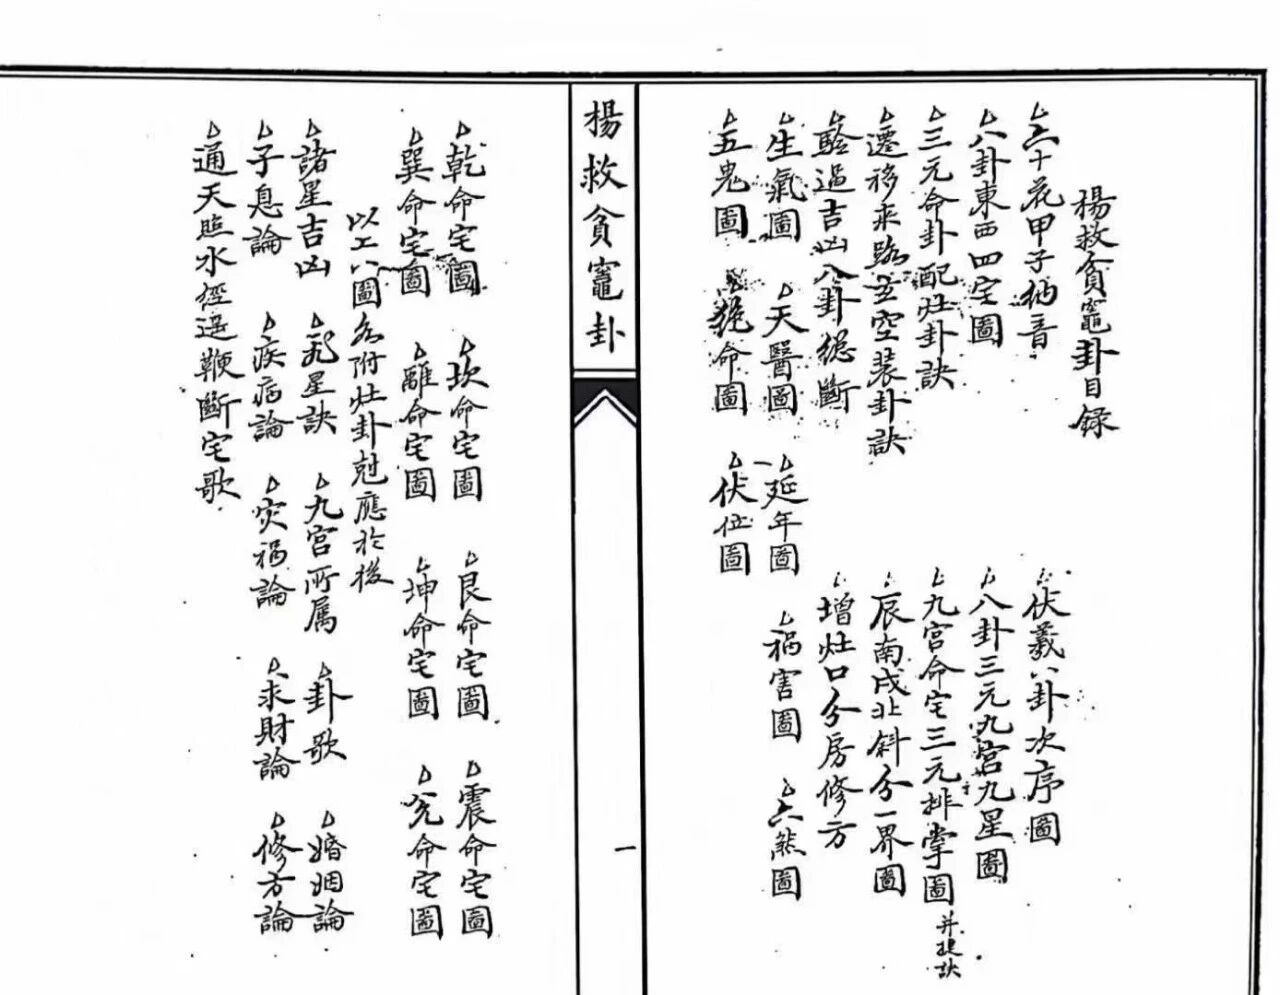 楊救貧竈卦目録
六十花甲子納音 伏羲八卦次序圖
八卦東西四宅圖 八卦三元九宮九星圖
三元命卦配灶卦訣 九宮命宅三元排掌圖 并捷訣
遷移来路玄空装卦訣 辰南戌北斜分一界圖
騐過吉凶八卦總斷 增灶口分房修方
生氣圖 天醫圖 延年圖 禍害圖 六煞圖
五鬼圖 絶命圖 伏位圖
楊救貧竈卦
一
乾命宅圖 坎命宅圖 艮命宅圖 震命宅圖
巽命宅圖 離命宅圖 坤命宅圖 兊命宅圖
以上八圖各附灶卦尅應於後
諸星吉凶 九星訣 九宮所属 卦歌 婚姻論
子息論 疾病論 灾禍論 求財論 修方論
通天照水經逐鞭斷宅歌